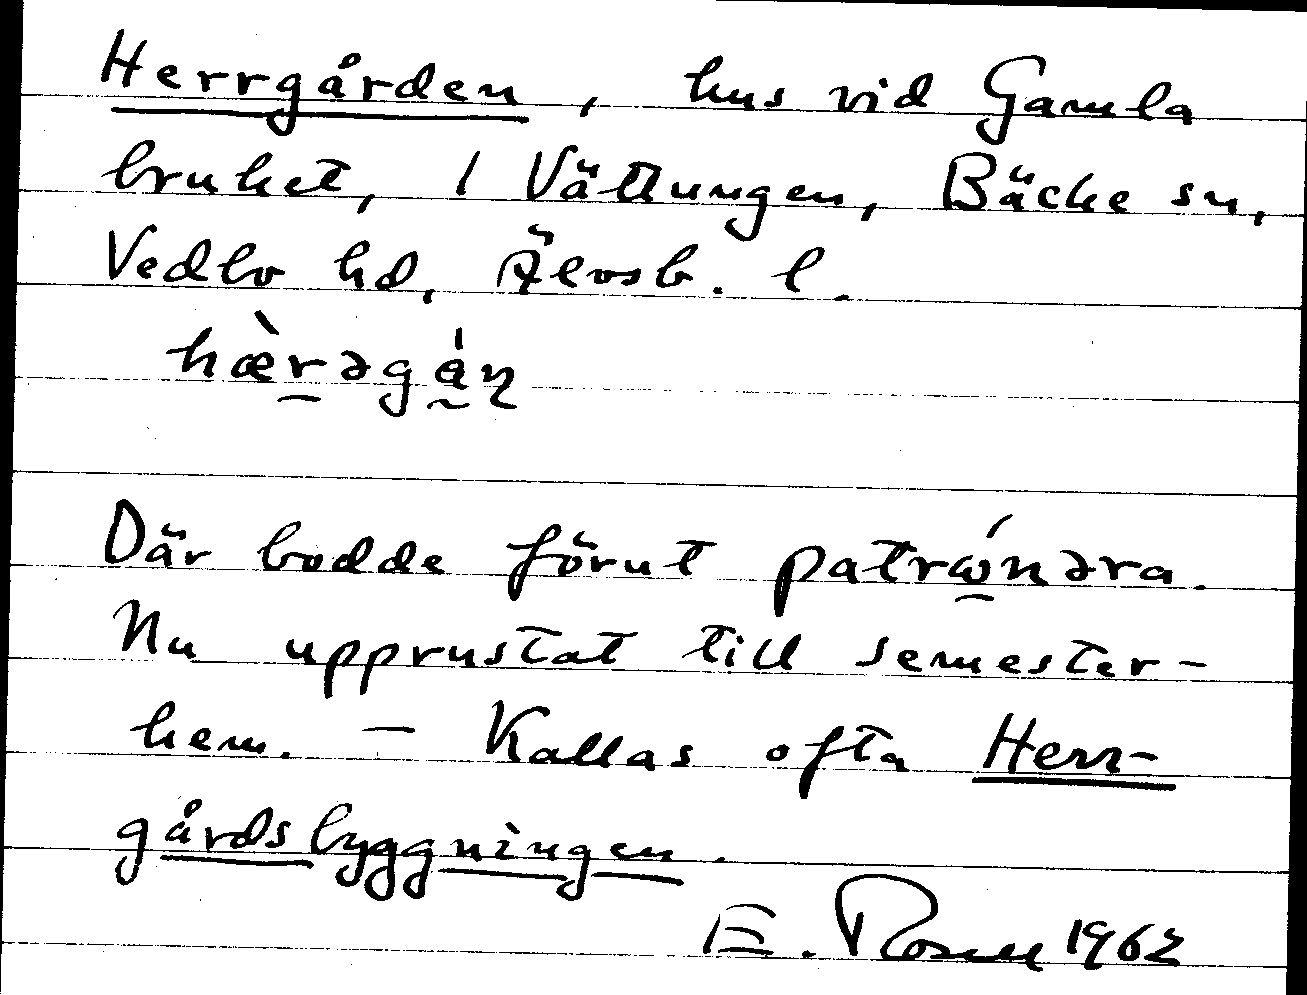 Herrgården, hus vid Gamla
bruket, 1 Vättungen, Bäcke sn,
Vedbo hd, Älvsb. l.
hæ̀r̠əgǻ̰ɳ
Där bodde förut patrώ̠nəra.
Nu upprustat till semester-
hem. – Kallas ofta Herr-
gårdsbyggningen.
E. Rosell 1962